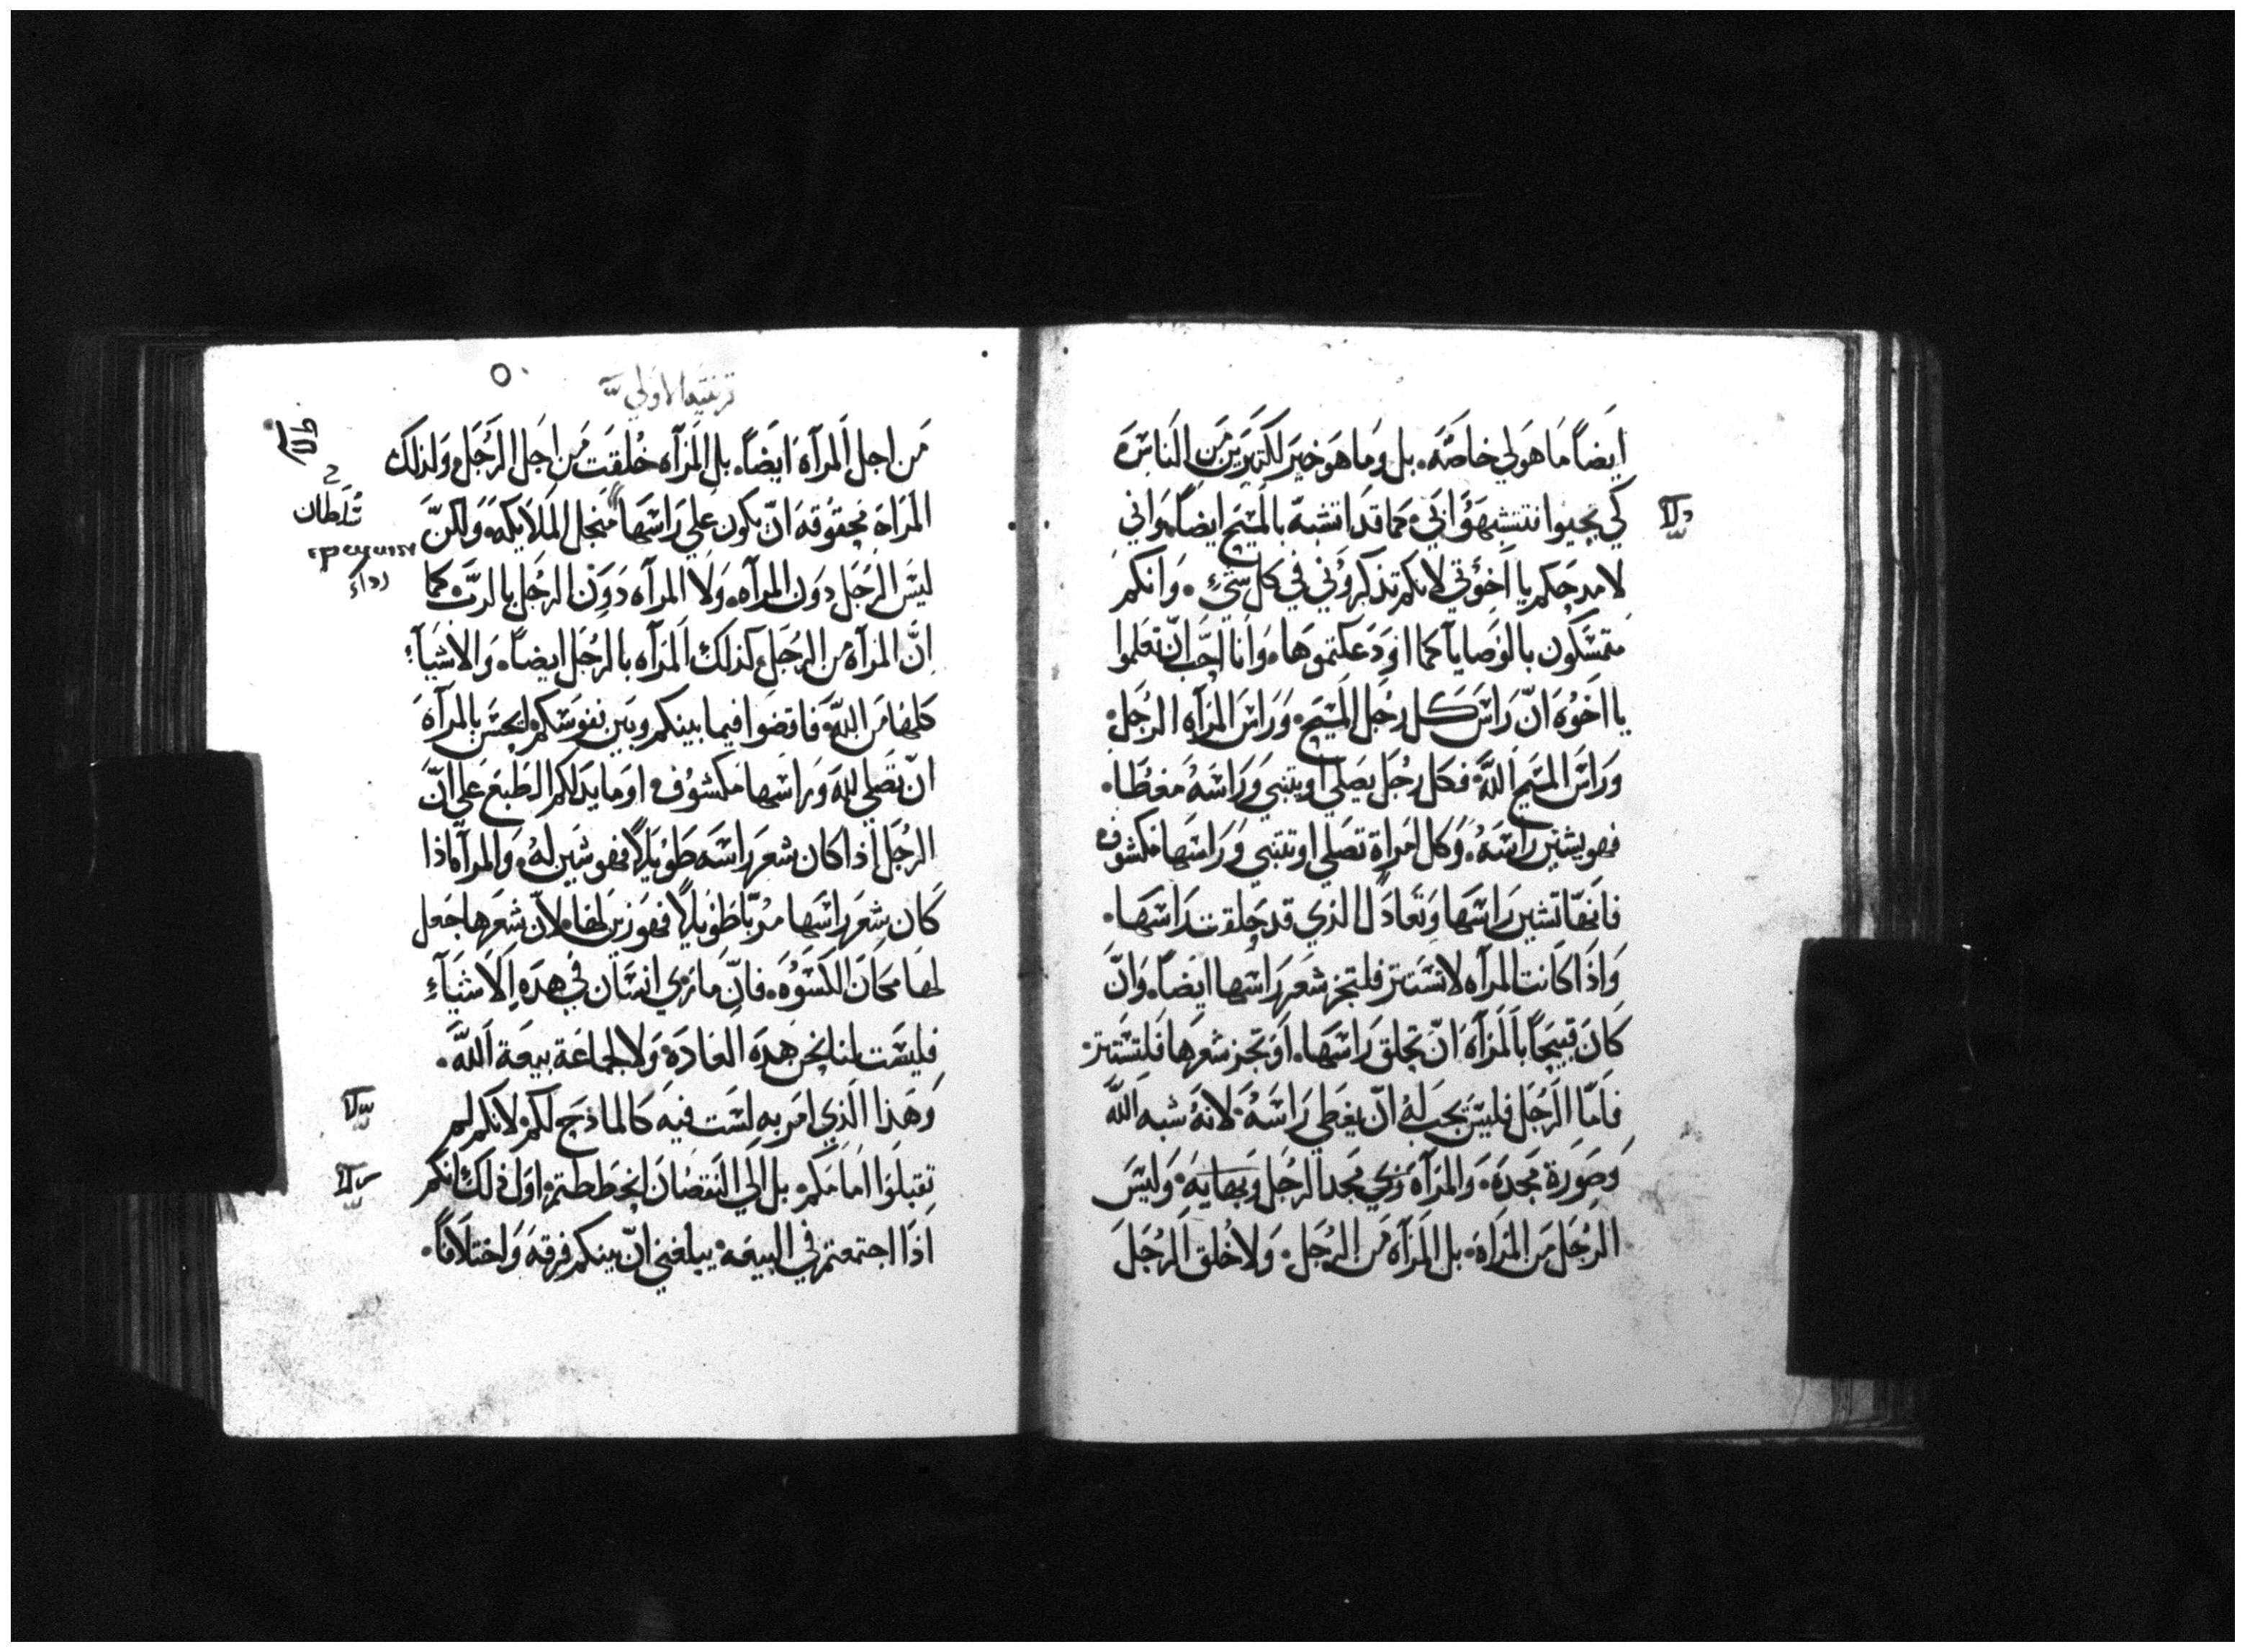 ايضاً ما هو لي خاصّه. بل وما هو خير لكثيرين من الناس
كي يحيوا فتتشبهؤا بي. كما قد اتشبه بالمسيح ايضاً. واني
لامدحكم يا اخؤتي لانكم تذكرؤني في كل شيءٍ. وانكم
متمسكون بالوصايا كما اودعكتموها. وانا احب ان تعلموا
يا اخوه ان راس كل رجل المسيح. وراس المرآه الرجل.
وراس المسيح الله. فكل رجل يصلي او يتنبي وراسه مغطا.
فهو يشين راسه. وكل امراة تصلي او تتنبي وراسها مكشوف
فانها تشين راسها وتعادل الذي قد حلقت راسها.
واذا كانت المرآه لا تستتر فلتجز شعر راسها ايضاً. وان
كان قبيحاً بالمرآه ان تحلق راسها. او تجز شعرها فلتستتر.
فاما الرجل فليس يجب له ان يغطي راسه. لانه شبه الله
وصورة مجده. والمرآه فهي مجد الرجل وبهايه. وليس
الرجل من المراه. بل المرآه من الرجل. ولا خلق الرجل
قرنتيه الاولي
من اجل المرآه ايضاً. بل المرآه خلقت من اجل الرجل ولذلك
المراه محقوقه ان يكون علي راسها منجل الملايكه. ولكن
سلطان
رداء
ليس الرجل دون المرآه. ولا المرآه دون الرجل بالرب. كما
ان المرآه من الرجل. كذلك المرآه بالرجل ايضاً. والاشيآء
كلها من الله. فاقضوا فيما بينكم وبين نفوسكم ايحسن بالمرآه
ان تصلي لله وراسها مكشوف. اوما يدلكم الطبع علي ان
الرجل اذا كان شعر راسه طويلاً فهو شين له. والمرآه اذا
كان شعر راسها مربا طويلاً فهو زين لها. لان شعرها جعل
لها مكان الكسوه. فان مارى انسان في هذه الاشيآء
فليست لنا نحن هذه العاده ولا لجماعة بيعة الله.
وهذا الذي امر به لست فيه كالماذح لكم. لانكم لم
تقبلوا امامكم. بل الي النقصان انحططتم. اول ذلك انكم
اذا اجتمعتم في البيعه. يبلغني ان بينكم فرقه واختلافاً.